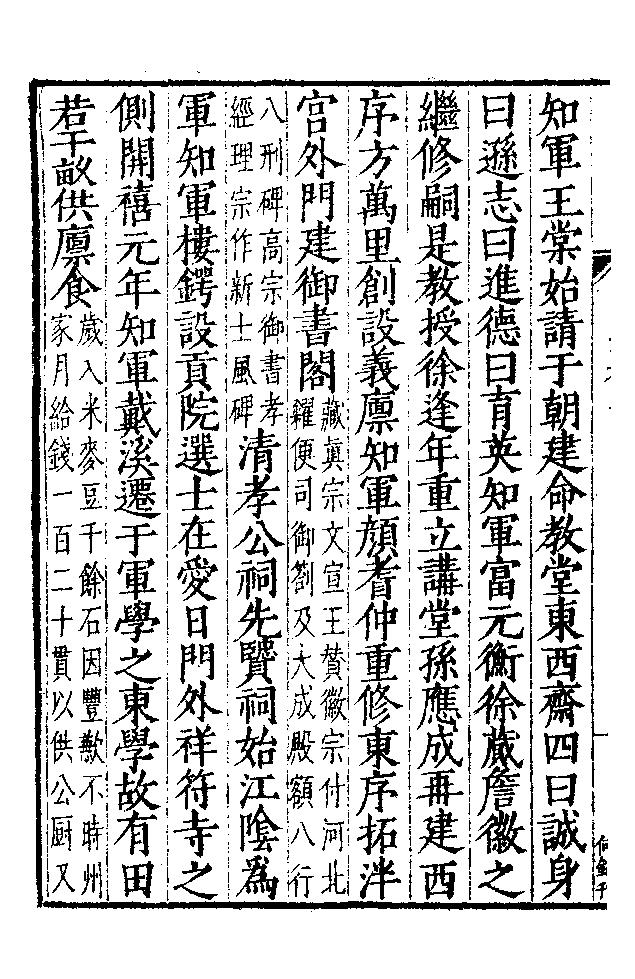 知軍王棠始請于朝建命教堂東西齋四曰誠身
曰遜志曰進德曰育英知軍富元衡徐蕆詹徽之
繼修嗣是教授徐逢年重立講堂孫應成再建西
序方萬里創設義廩知軍顏耆仲重修東序拓泮
宮外門建御書閣藏眞宗文宣王贊徽宗付河北糴便司御劄及大成殿額八行
八刑碑高宗御書孝經理宗作新士風碑清孝公祠先賢祠始江陰爲
軍知軍樓鍔設貢院選士在愛日門外祥符寺之
側開禧元年知軍戴溪遷于軍學之東學故有田
若干畝供廩食歲入米麥豆千餘石因豐歉不時州家月給錢一百二十貫以供公厨又